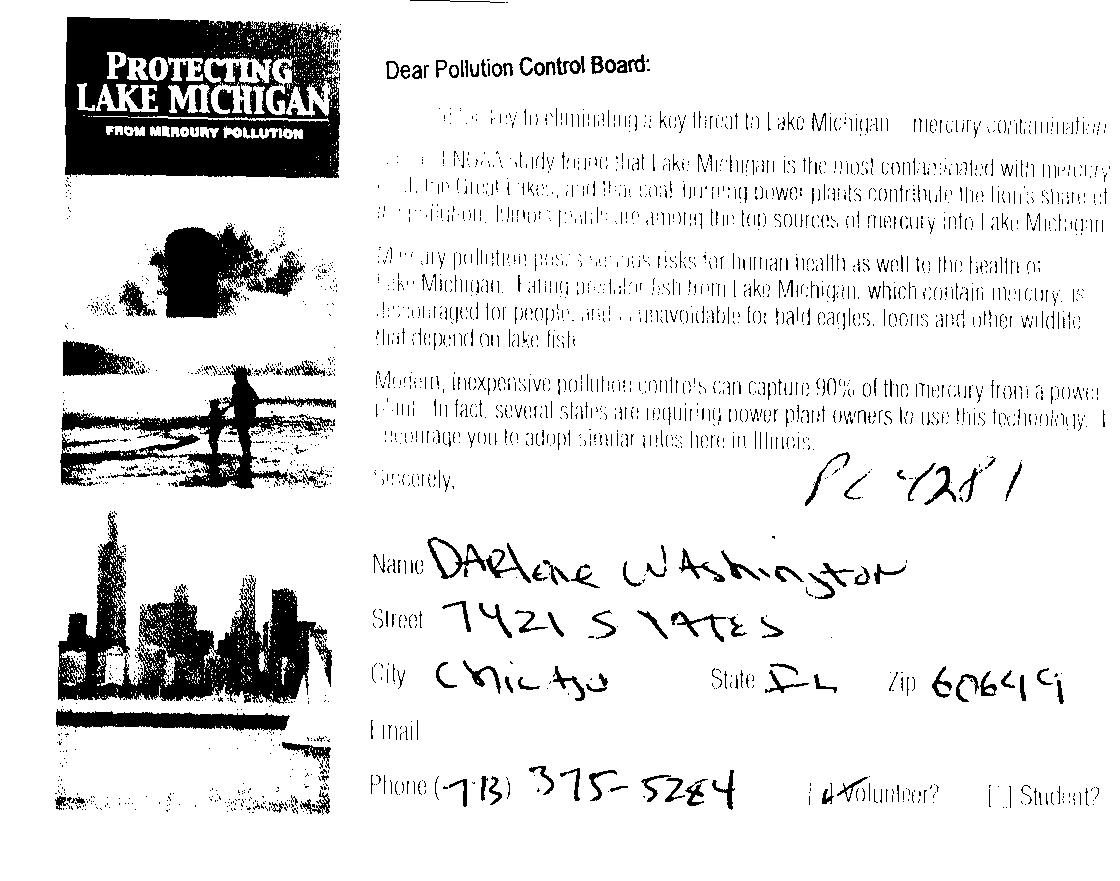 PROTECTING
LAKE MICHIGAN
FROM MERCURY POLLUTION
Dear Pollution Control Board:
key to eliminating a key threat to Lake Michigan mercury contamination
NOAA study found that Lake Michigan is the most contaminated with mercury
the Great Lakes, and that coal-burning power plants contribute the lion's share of
pollution. Illinois plants are among the top sources of mercury into Lake Michigan
Mercury pollution poses serious risks for human health as well to the health of
Lake Michigan. Eating predator fish from Lake Michigan, which contain mercury, is
discouraged for people, and is unavoidable for bald eagles, loons and other wildlife
that depend on lake fish
Modern, inexpensive pollution controls can capture 90% of the mercury from a power
plant. In fact, several states are requiring power plant owners to use this technology. I
encourage you to adopt similar rules here in Illinois.
Sincerely,
PC 4281
Name DARlene WAshington
Street 7421 S YATES
City Chicago State IL Zip 60649
Email
Phone (773) 375-5284 [ ] Volunteer? [ ] Student?